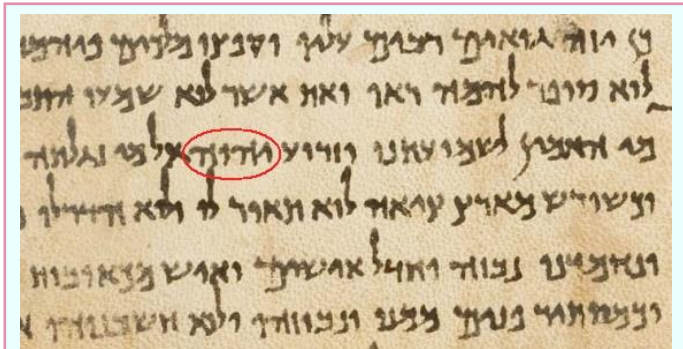 כן יזה גואים רבים עליו וקפצו מלכים פיהמ
לוא סופר להמה ראו ואת אשר לוא שמעו התב
מי האמין לשמועתנו וזרוע יהוה אל מי נגלתה
וכשורש מארץ ציאה לוא תאור לו ולוא הדר לו ו
ונחמדנו נבזה וחדל אישים ואיש מכאובות
וכמסתיר פנים ממנו ונבוזהו ולוא חשבנוהו א